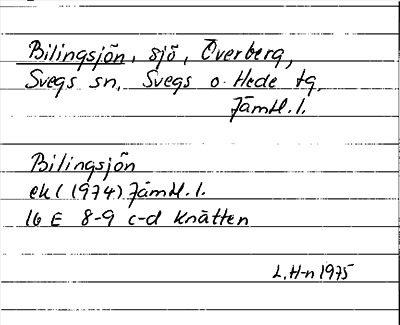 Bilingsjön, sjö, Överberg,
Svegs sn, Svegs o. Hede tg,
Jämtl. l.
Bilingsjön
ek (1974) Jämtl. l.
16 E 8-9 c-d Knätten
L. H-n 1975